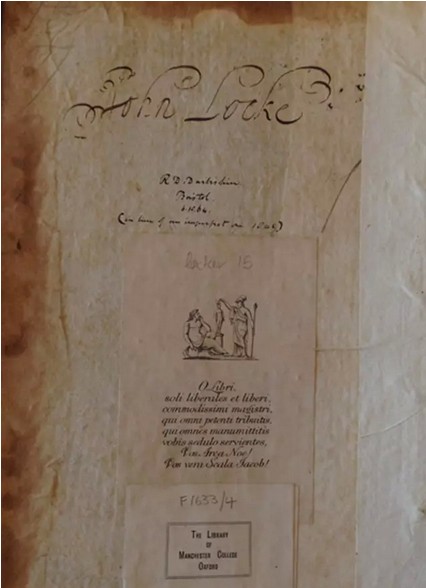 John Locke
R. D. Darbishire
Bristol
(in lieu of an imperfect one
15
O Libri,
soli liberales et liberi,
commodissimi magistri,
qui omni petenti tribuitis,
qui omnes manumittitis
vobis sedulo servientes,
Vos Arca Noe!
Vos vera Scala Jacob!
F1633/4
THE LIBRARY
OF
MANCHESTER COLLEGE
OXFORD